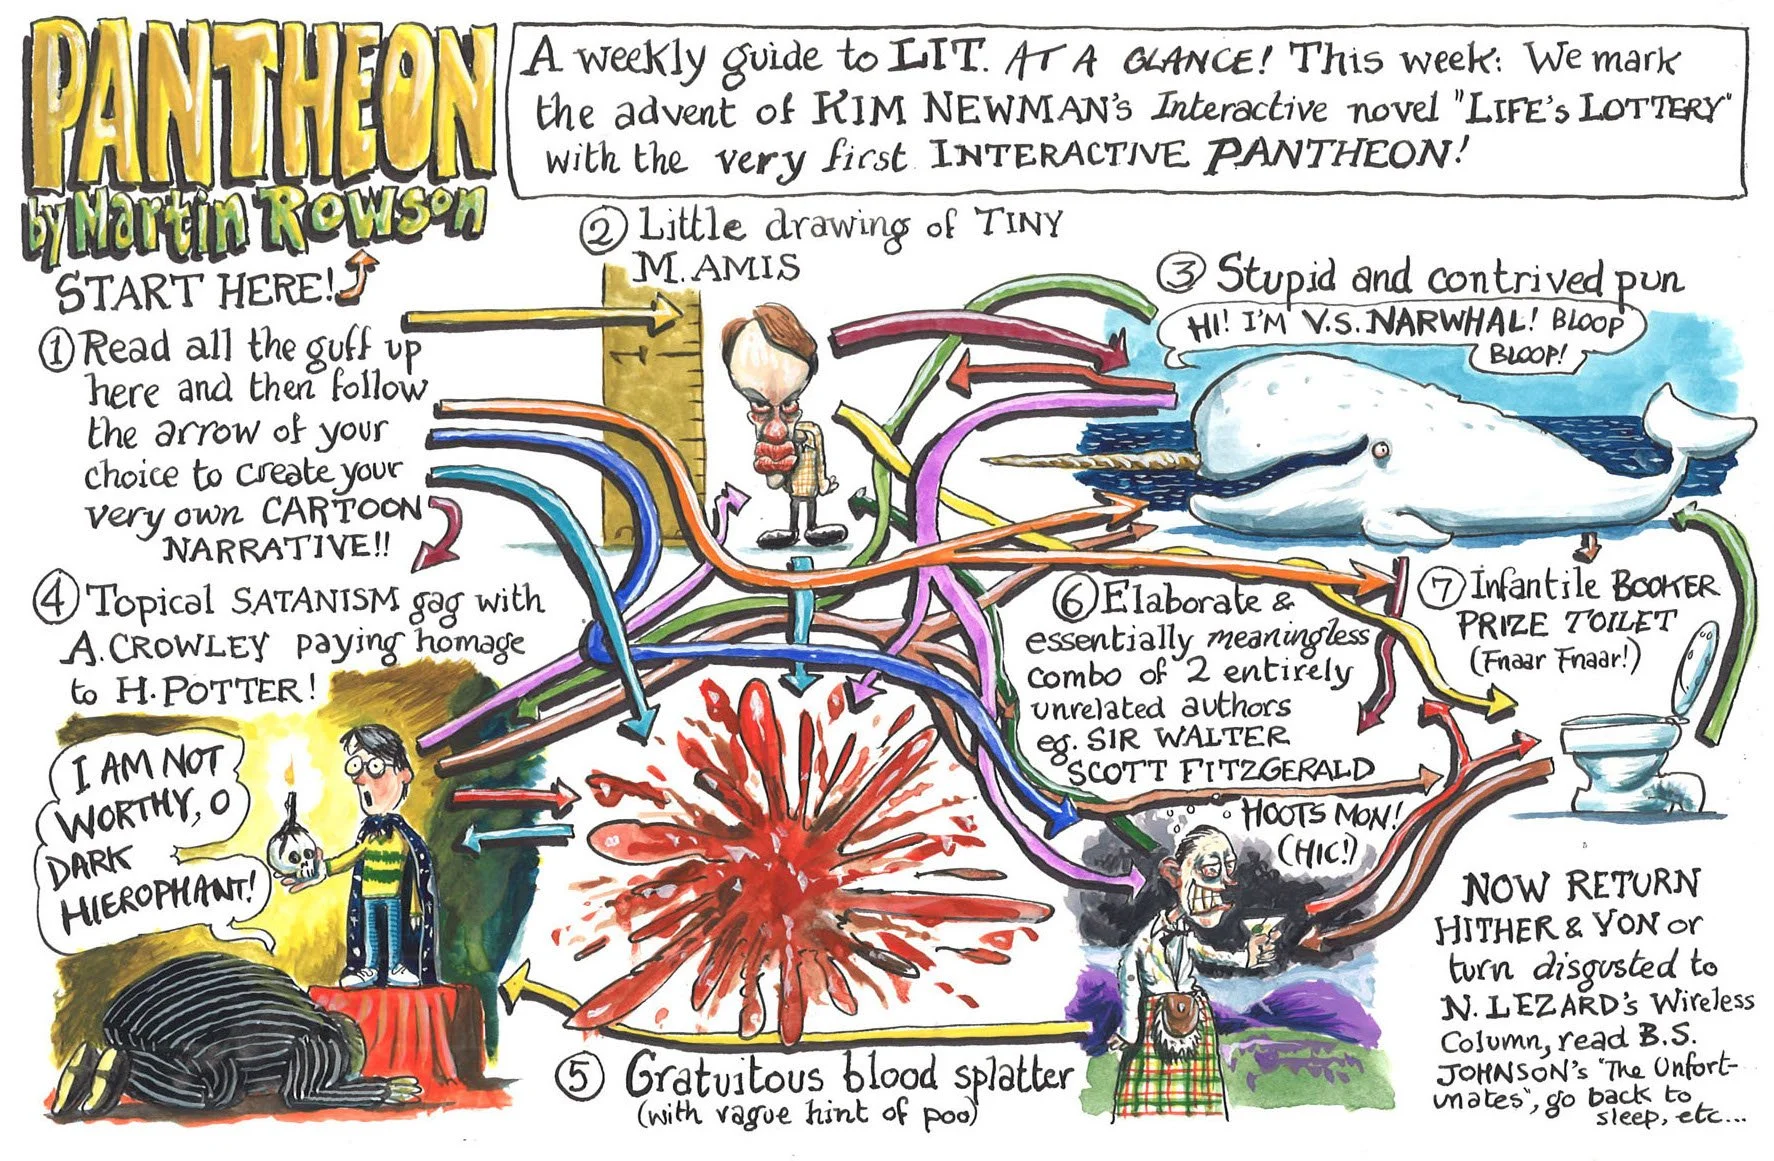 PANTHEON
by Martin Rowson
A weekly guide to LIT. AT A GLANCE! This week: We mark
the advent of KIM NEWMAN'S Interactive novel "LIFE'S LOTTERY"
with the very first INTERACTIVE PANTHEON!
START HERE!
① Read all the guff up
here and then follow
the arrow of your
choice to create your
very own CARTOON
NARRATIVE!!
② Little drawing of TINY
M. AMIS
1
2
③ Stupid and contrived pun
HI! I'M V.S. NARWHAL! BLOOP
BLOOP!
④ Topical SATANISM gag with
A. CROWLEY paying homage
to H. POTTER!
I AM NOT
WORTHY, O
DARK
HIEROPHANT!
⑤ Gratuitous blood splatter
(with vague hint of poo)
⑥ Elaborate &
essentially meaningless
combo of 2 entirely
unrelated authors
eg. SIR WALTER
SCOTT FITZGERALD
HOOTS MON!
(HIC!)
⑦ Infantile BOOKER
PRIZE TOILET
(Fnaar Fnaar!)
NOW RETURN
HITHER & YON or
turn disgusted to
N. LEZARD's Wireless
Column, read B.S.
JOHNSON's "The Unfort-
unates", go back to
sleep, etc...